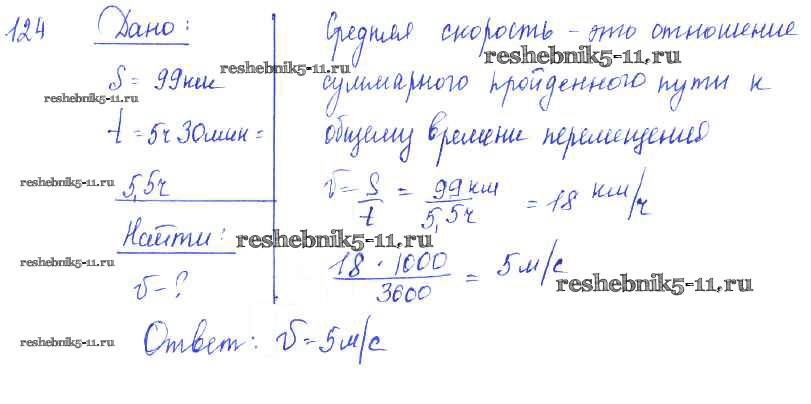 124 Дано:
S = 99 км
t = 5ч 30мин =
5,5ч
Найти:
v - ?
Средняя скорость - это отношение
суммарного пройденного пути к
общему времени перемещения
v = S/t = 99 км/5,5ч = 18 км/ч
18 · 1000/3600 = 5 м/с
Ответ: v = 5 м/с
reshebnik5-11.ru
reshebnik5-11.ru
reshebnik5-11.ru
reshebnik5-11.ru
reshebnik5-11.ru
reshebnik5-11.ru
reshebnik5-11.ru
reshebnik5-11.ru